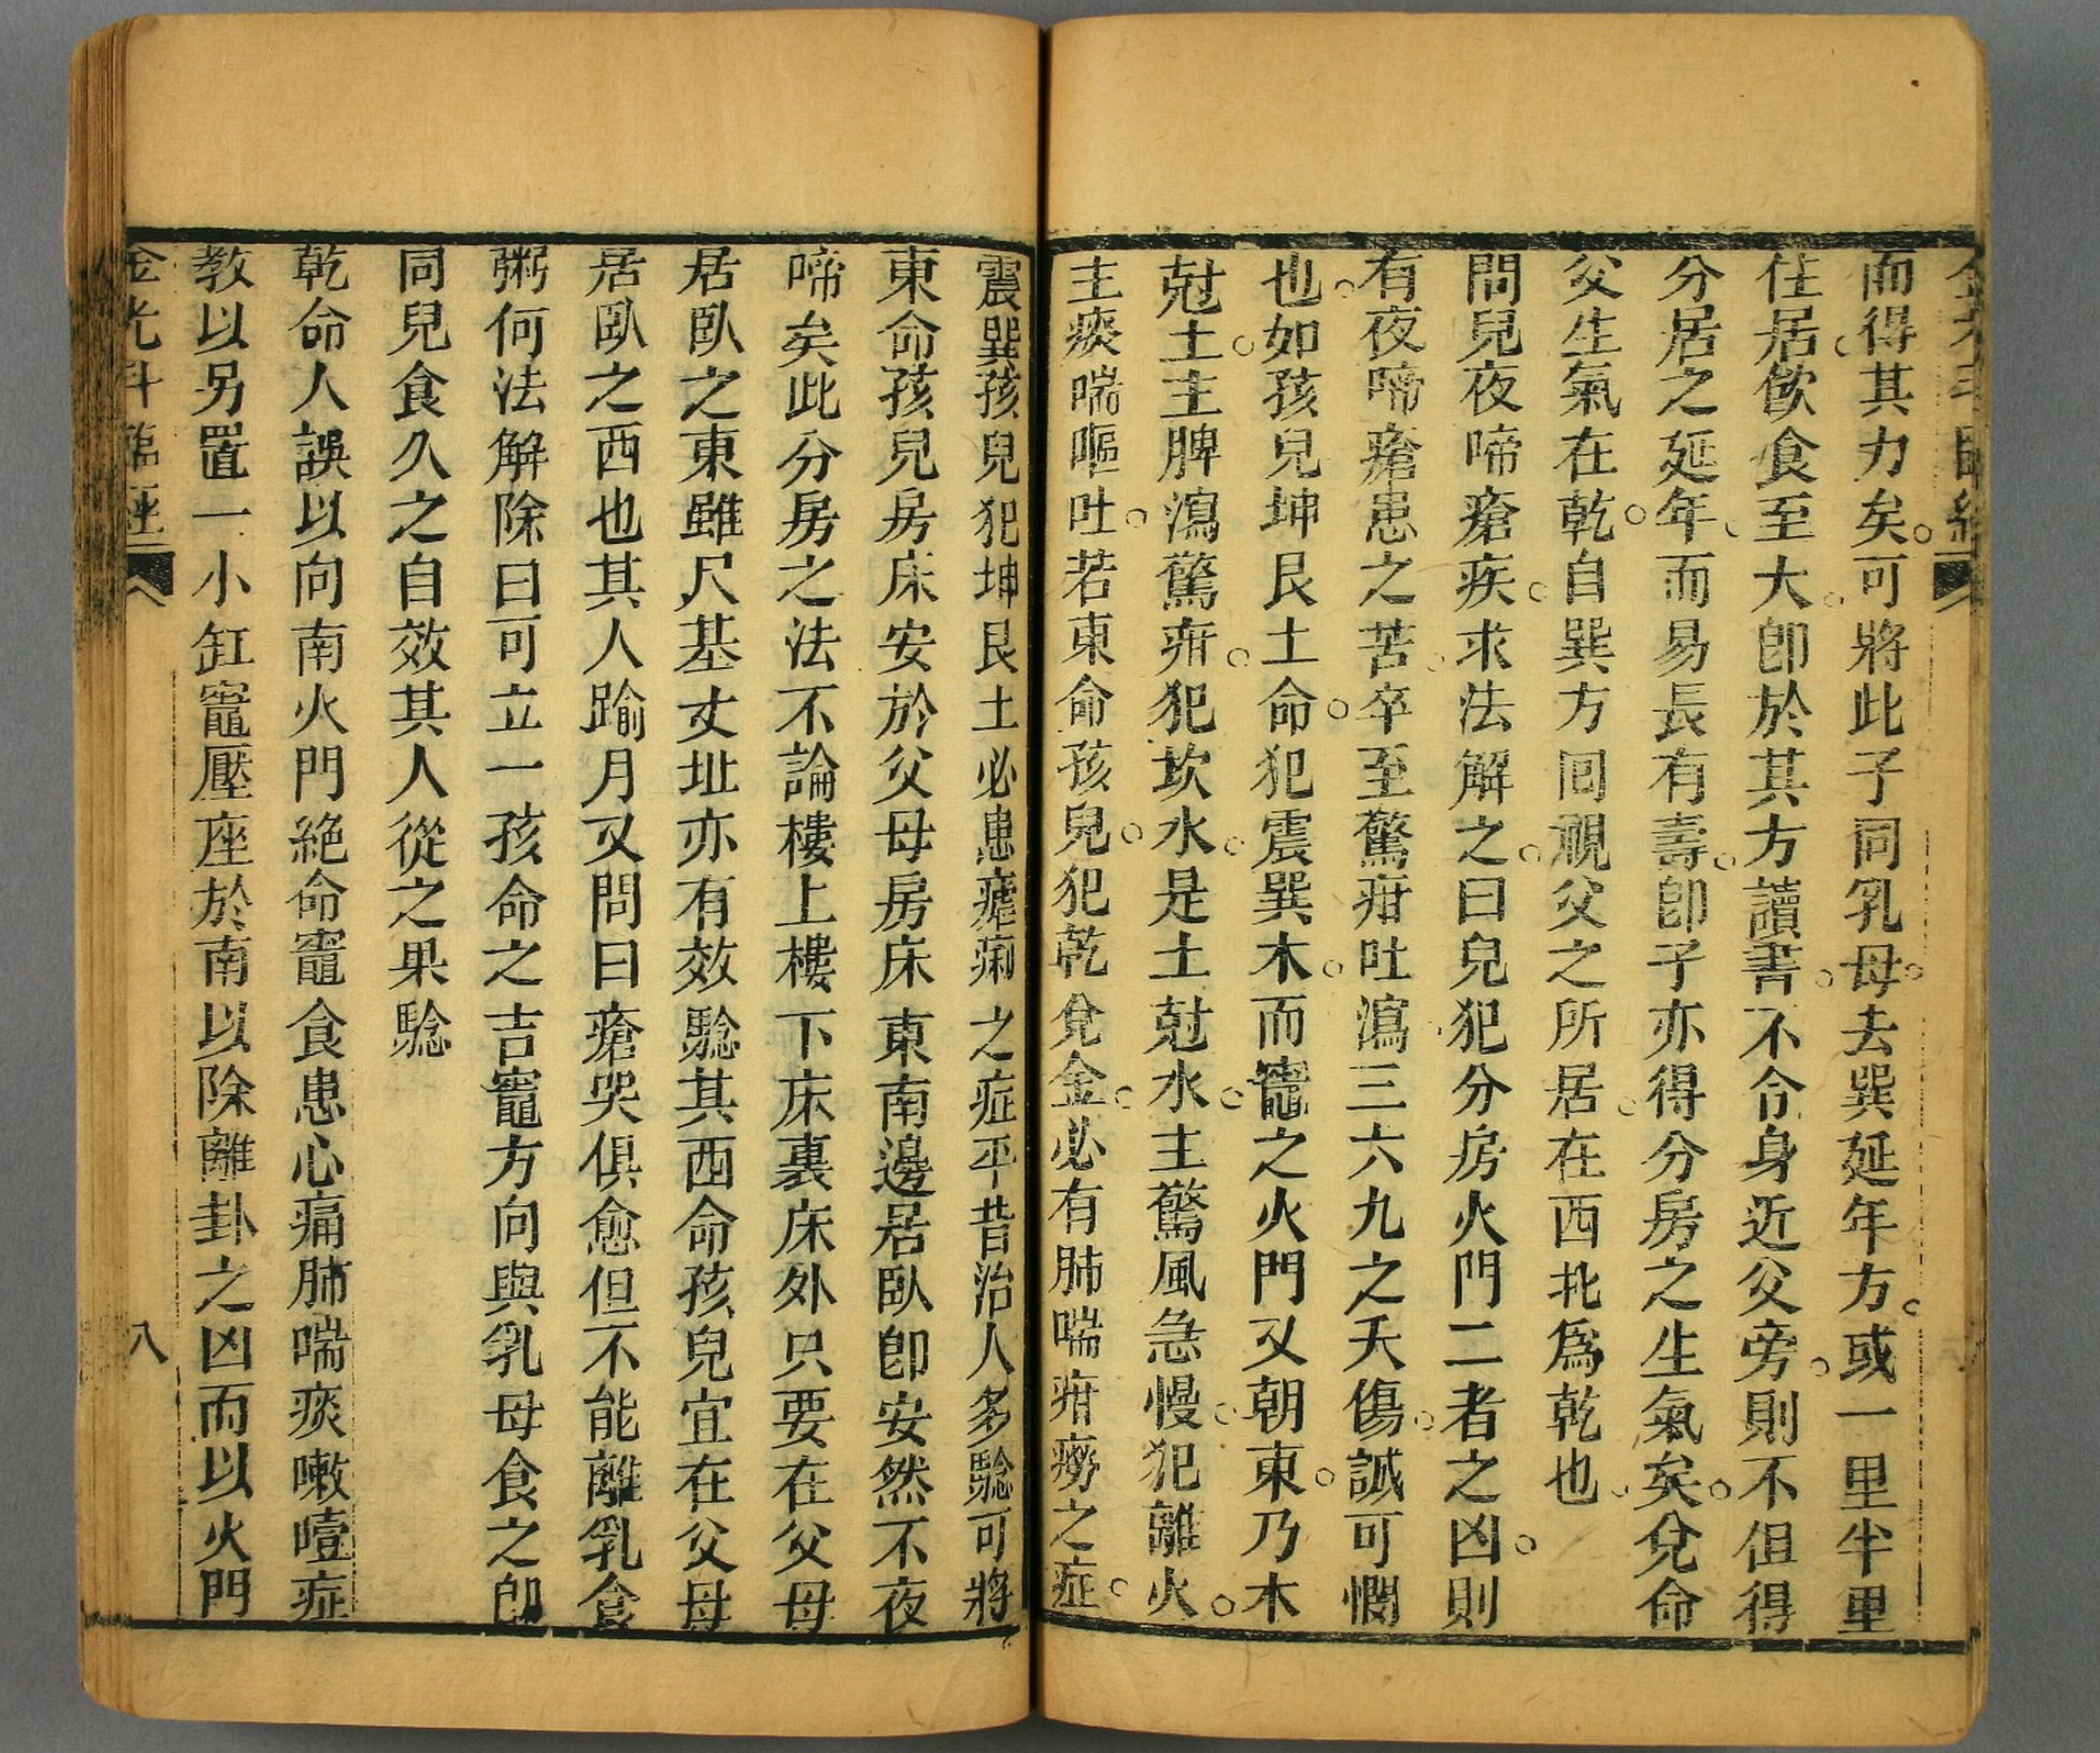 而得其力矣可將此子同乳母去巽延年方或一里半里
住居飲食至大卽於其方讀書不令身近父旁則不但得
分居之延年而易長有壽卽子亦得分房之生氣矣兌命
父生氣在乾自巽方回視父之所居在西北爲乾也
問兒夜啼瘡疾求法解之曰兒犯分房火門二者之凶則
有夜啼瘡患之苦卒至驚疳吐瀉三六九之夭傷誠可憫
也如孩兒坤艮土命犯震巽木而竈之火門又朝東乃木
尅土主脾瀉驚疳犯坎水是土尅水主驚風急慢犯離火
主痰喘嘔吐若東命孩兒犯乾兌金必有肺喘疳癆之症
震巽孩兒犯坤艮土必患瘧痢之症平昔治人多騐可將
東命孩兒房床安於父母房床東南邊居臥卽安然不夜
啼矣此分房之法不論樓上樓下床裏床外只要在父母
居臥之東雖尺基丈址亦有效騐其西命孩兒宜在父母
居臥之西也其人踰月又問曰瘡哭俱愈但不能離乳食
粥何法解除曰可立一孩命之吉竈方向與乳母食之卽
同兒食久之自效其人從之果騐
乾命人誤以向南火門絕命竈食患心痛肺喘痰嗽噎症
教以另置一小缸竈壓座於南以除離卦之凶而以火門
金光斗臨經
八